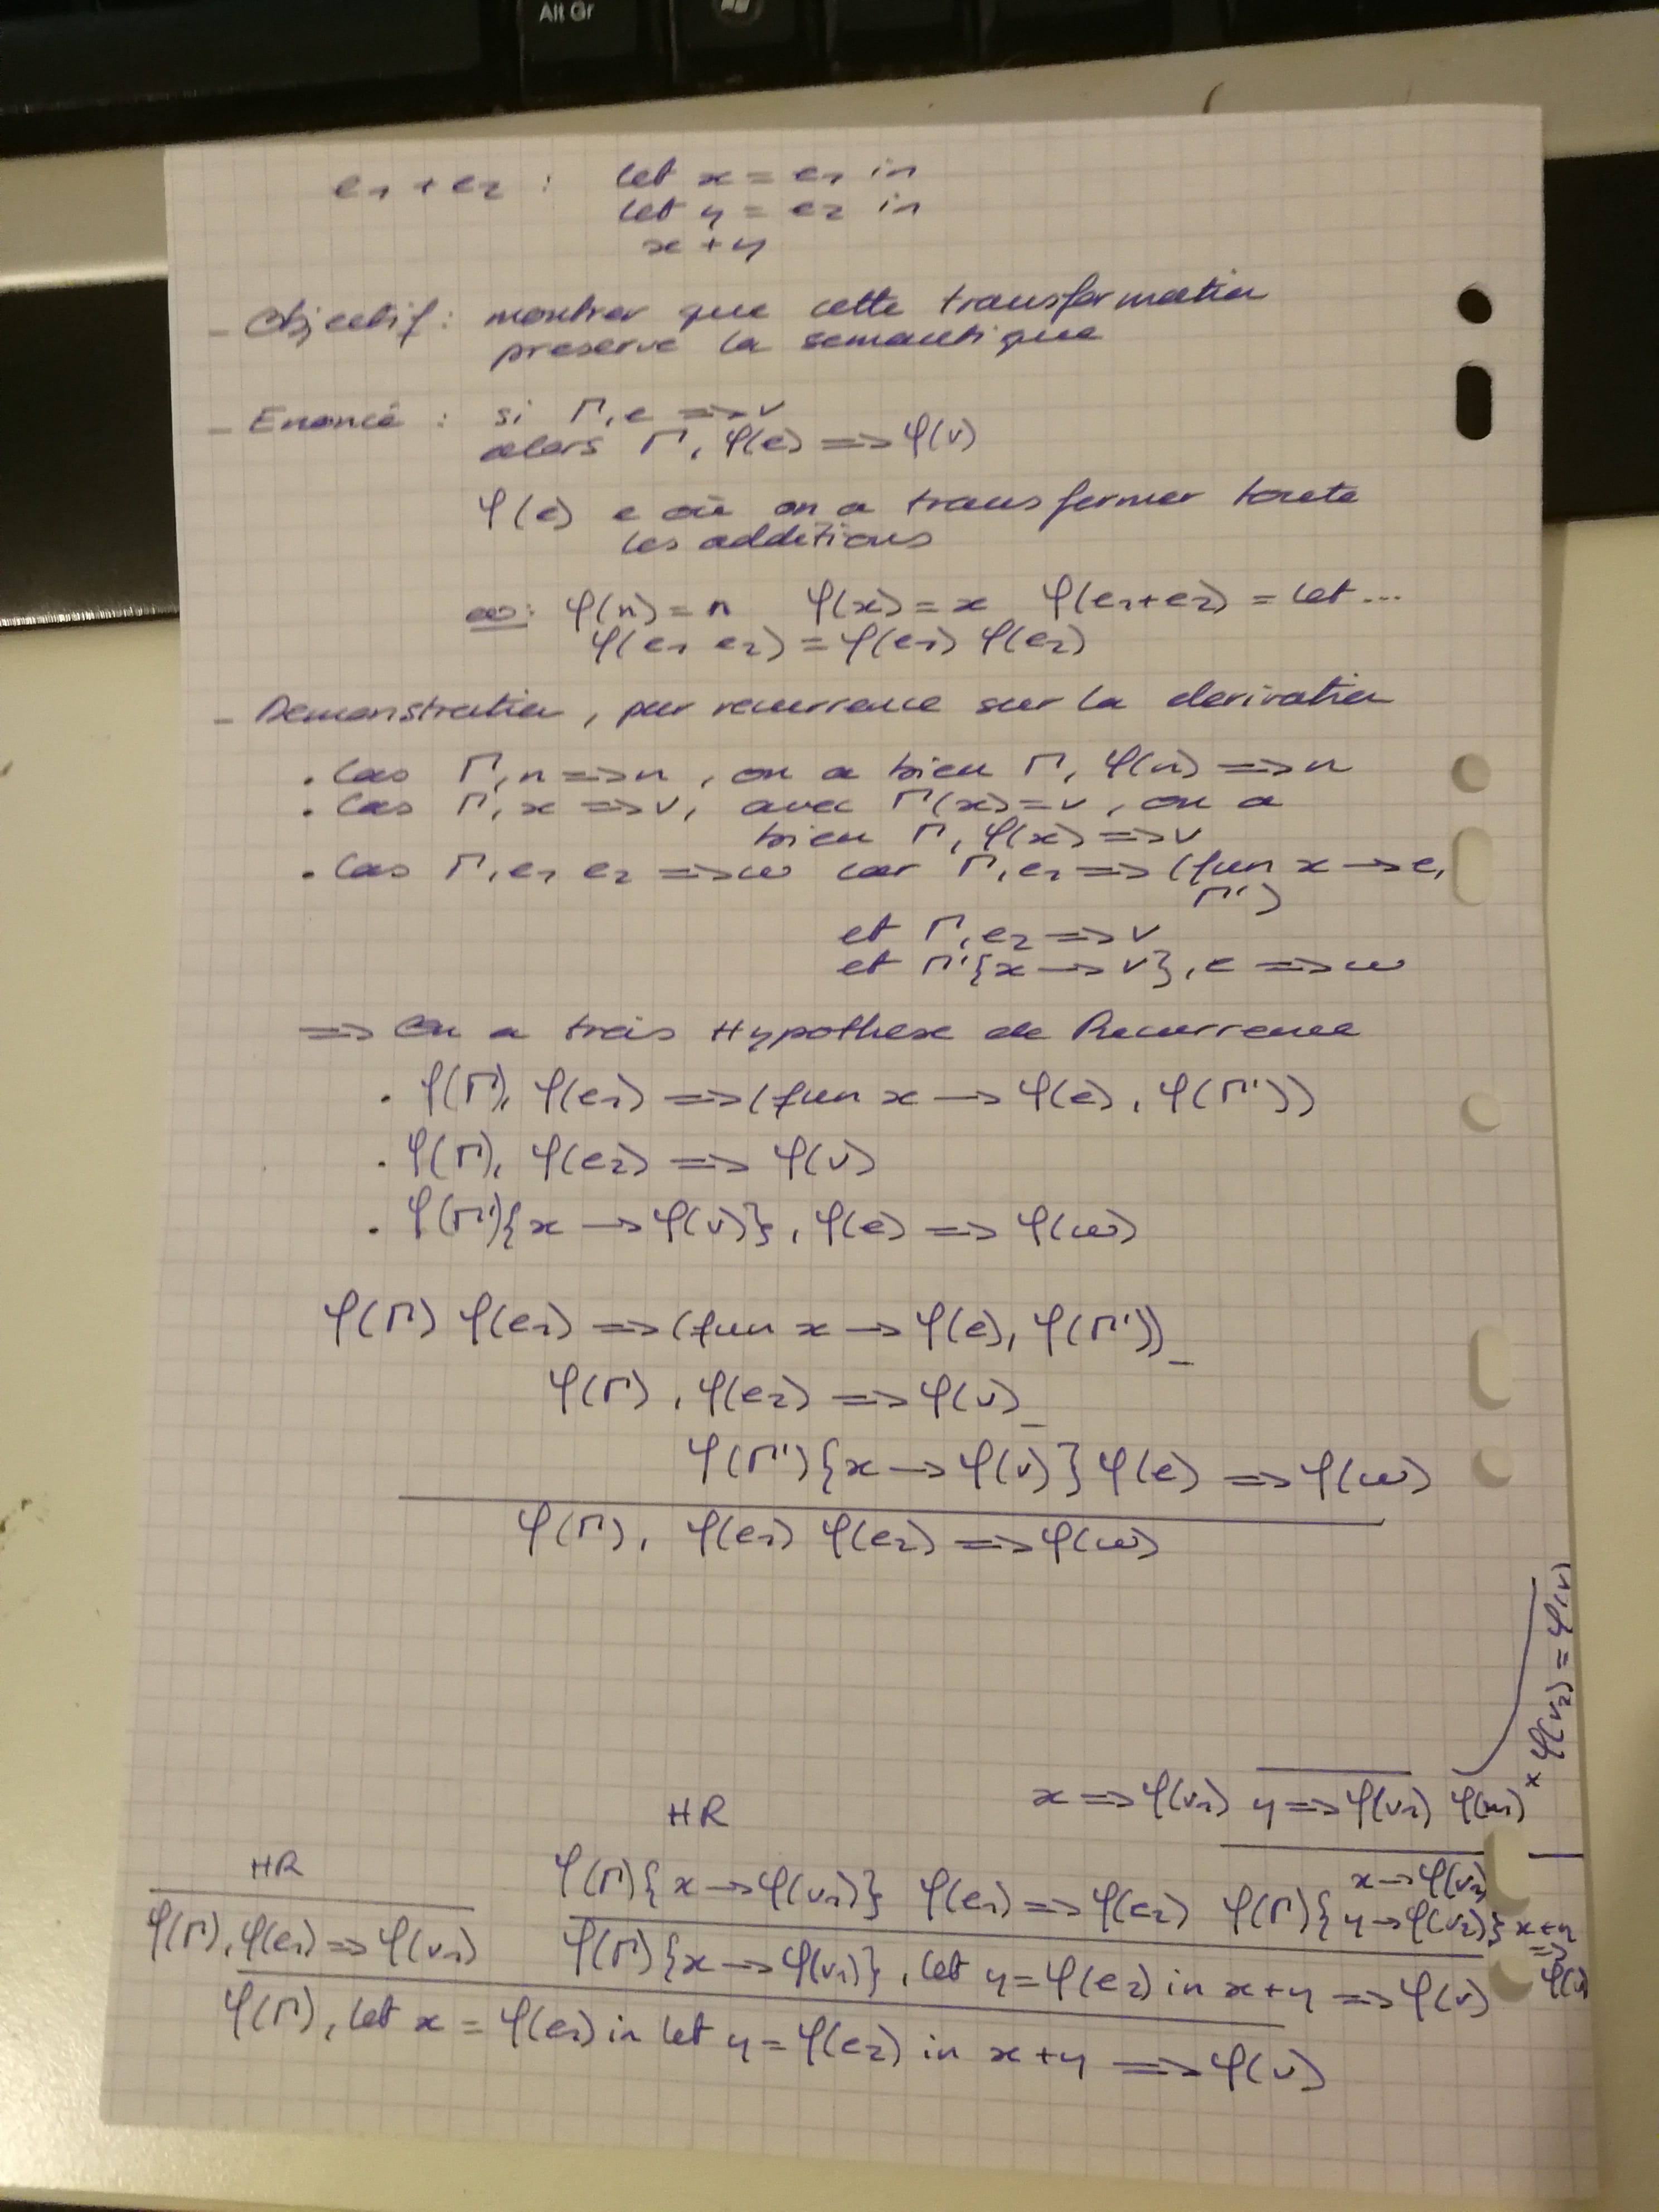 Alt Gr
e1 + e2 : let x = e1 in
let y = e2 in
x + y
- Objectif : montrer que cette transformation
preserve la semantique
- Enoncé : si Γ, e => v
alors Γ, φ(e) => φ(v)
φ(e) e où on a transformer toute
les additions
φ(n) = n φ(x) = x φ(e1+e2) = let ...
φ(e1 e2) = φ(e1) φ(e2)
- Demonstration, par recurrence sur la derivation
. Cas Γ, n => n, on a bien Γ, φ(n) => n
. Cas Γ, x => v, avec Γ(x) = v, on a
bien Γ, φ(x) => v
. Cas Γ, e1 e2 => w car Γ, e1 => (fun x -> e,
Γ')
et Γ, e2 => v
et Γ'{x -> v}, e => w
=> On a trois Hypothese de Recurrence
. φ(Γ), φ(e1) => (fun x -> φ(e), φ(Γ'))
. φ(Γ), φ(e2) => φ(v)
. φ(Γ'){x -> φ(v)}, φ(e) => φ(w)
φ(Γ) φ(e1) => (fun x -> φ(e), φ(Γ'))_
φ(Γ), φ(e2) => φ(v)_
φ(Γ'){x -> φ(v)} φ(e) => φ(w)
φ(Γ), φ(e1) φ(e2) => φ(w)
x => φ(v1) y => φ(v2) φ(v1) + φ(v2) = φ(v)
HR HR
φ(Γ){x -> φ(v1)} φ(e1) => φ(e2) φ(Γ){x -> φ(v1)
y -> φ(v2)} x+y => φ(v)
φ(Γ), φ(e1) => φ(v1) φ(Γ){x -> φ(v1)}, let y = φ(e2) in x+y => φ(v)
φ(Γ), let x = φ(e1) in let y = φ(e2) in x+y => φ(v)